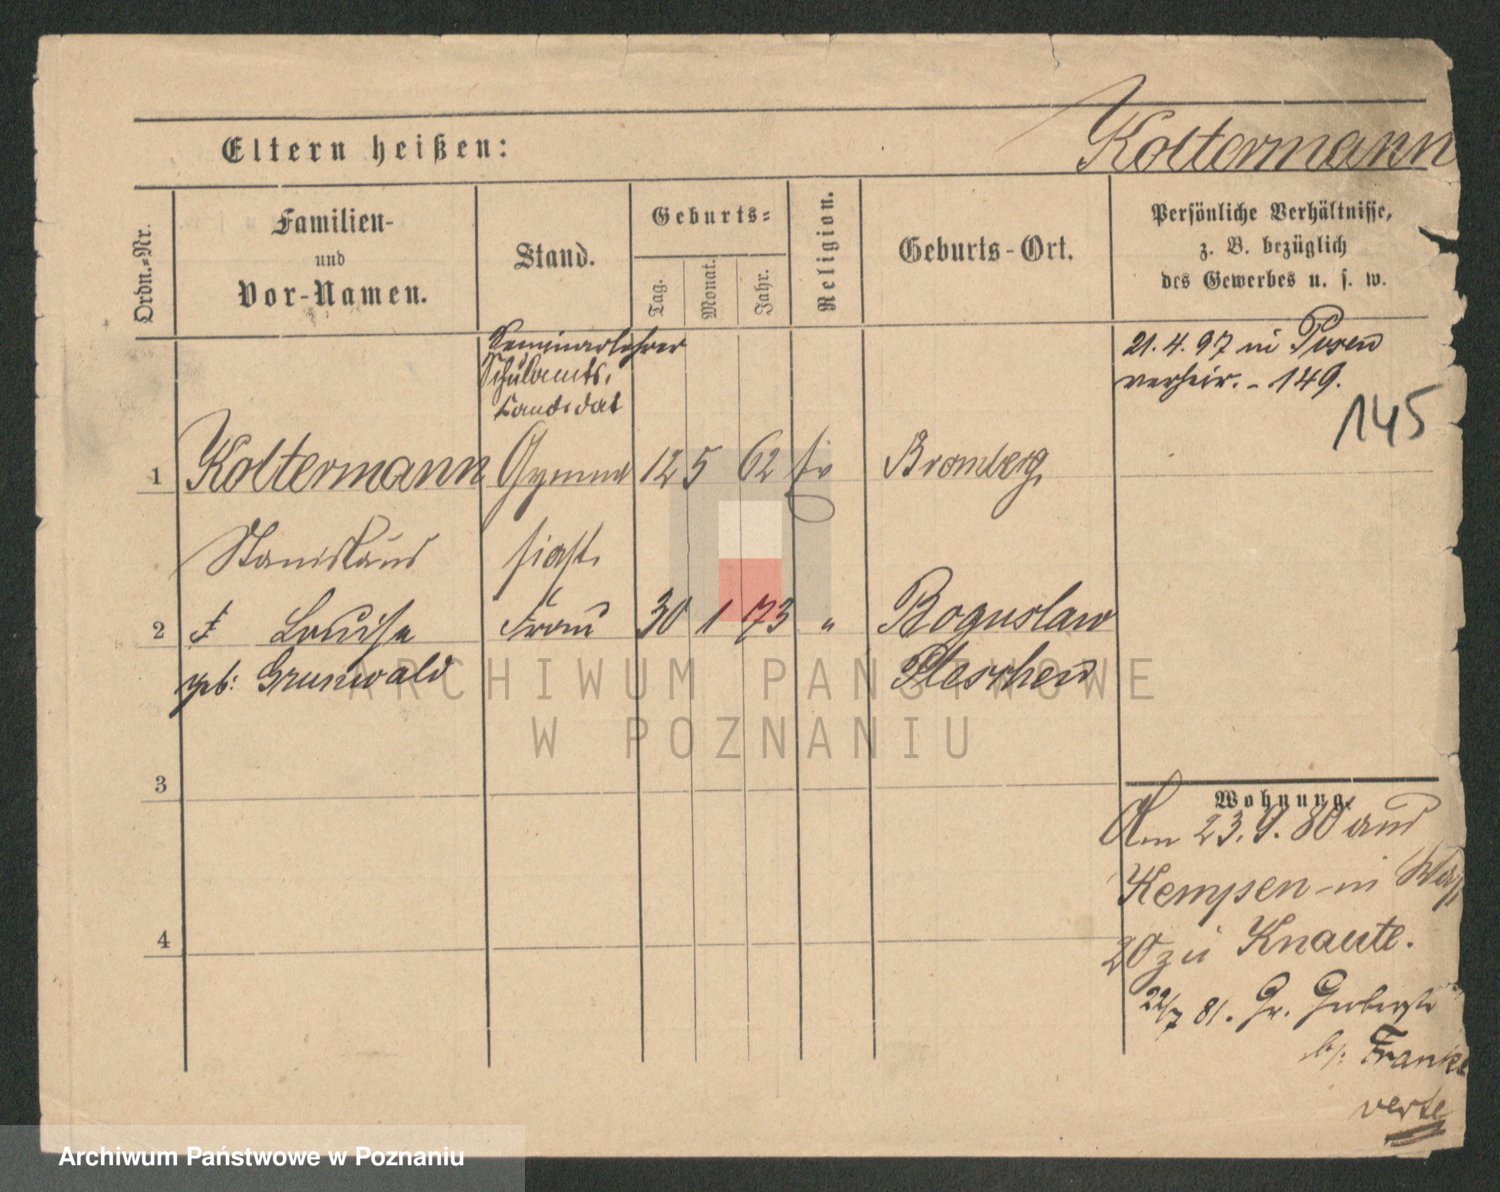 Eltern heißen:
Koltermann
Ordn.-Nr.
Familien-
und
Vor-Namen.
Stand.
Geburts-
Tag.
Monat.
Jahr.
Religion.
Geburts-Ort.
Persönliche Verhältnisse,
z. B. bezüglich
des Gewerbes u. s. w.
Seminarlehrer
Schulamts.
Candidat
21. 4. 97 in Posen
verheir. - 149.
145
1 Koltermann Gymna 12 5 62 Bromberg
Stanislaus siast.
2 Louise Frau 30 1 73 " Boguslaw
geb: Grunwald Pleschen
3
4
Wohnung.
Am 23. 9. 80 aus
Kempen in
20 zu Knaute.
22/7 81. Gr. Gerberstr
b/: Franke
verte
ARCHIWUM PAŃSTWOWE
W POZNANIU
Archiwum Państwowe w Poznaniu